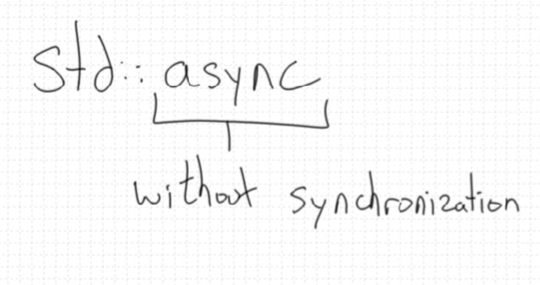 std::async
without synchronization